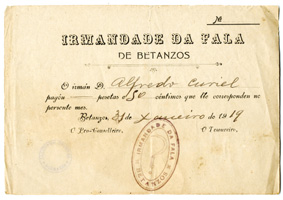 №
IRMANDADE DA FALA
DE BETANZOS
O irmán D. Alfredo Curiel
pagóu pesetas 50 céntimos que lle corresponden no
persente mes.
Betanzos, 31 de Xaneiro de 1919
O Pro-Conselleiro, O Tesoureiro,
IRMANDADE DA FALA